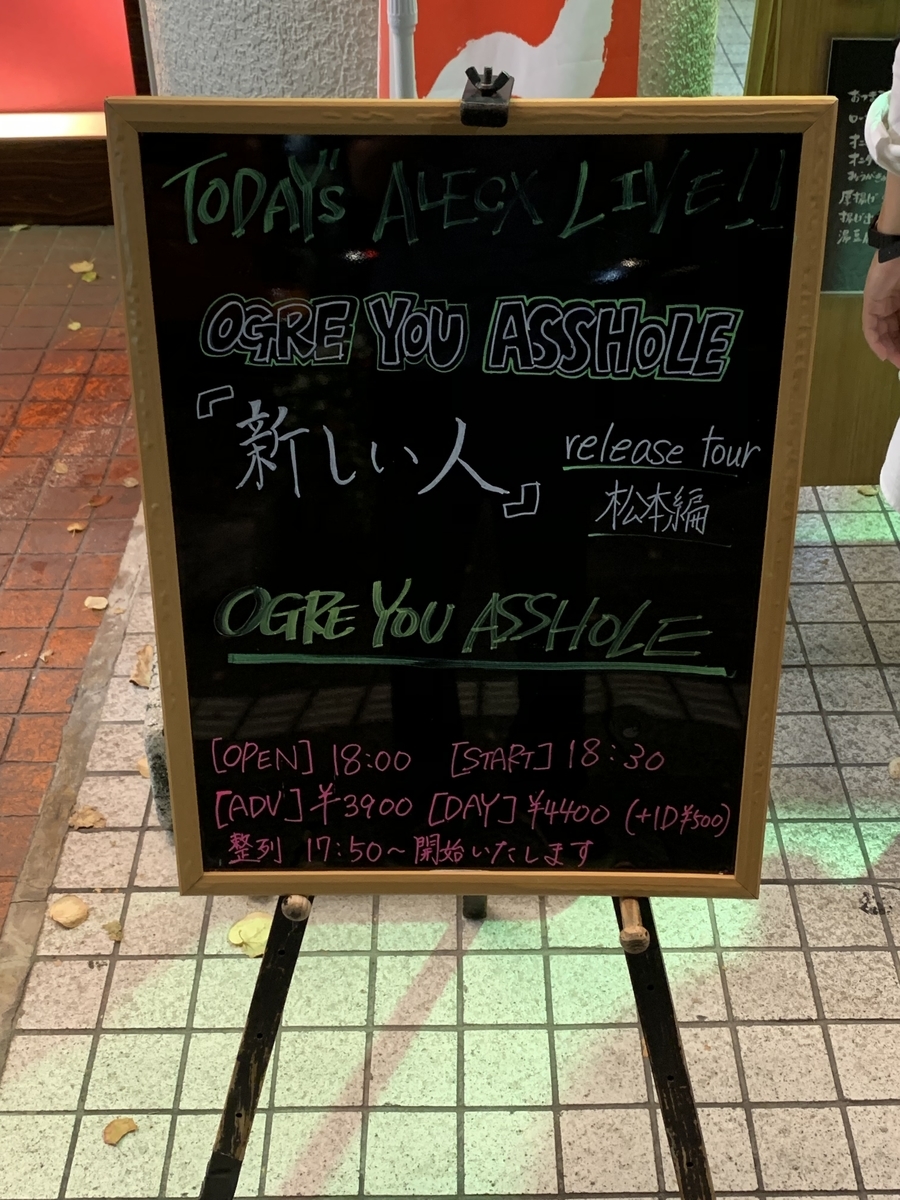 TODAY'S ALECX LIVE!!
OGRE YOU ASSHOLE
『新しい人』 release tour
松本編
OGRE YOU ASSHOLE
[OPEN] 18:00 [START] 18:30
[ADV] ¥3900 [DAY] ¥4400 (+1D¥500)
整列 17:50~開始いたします
厚揚げ